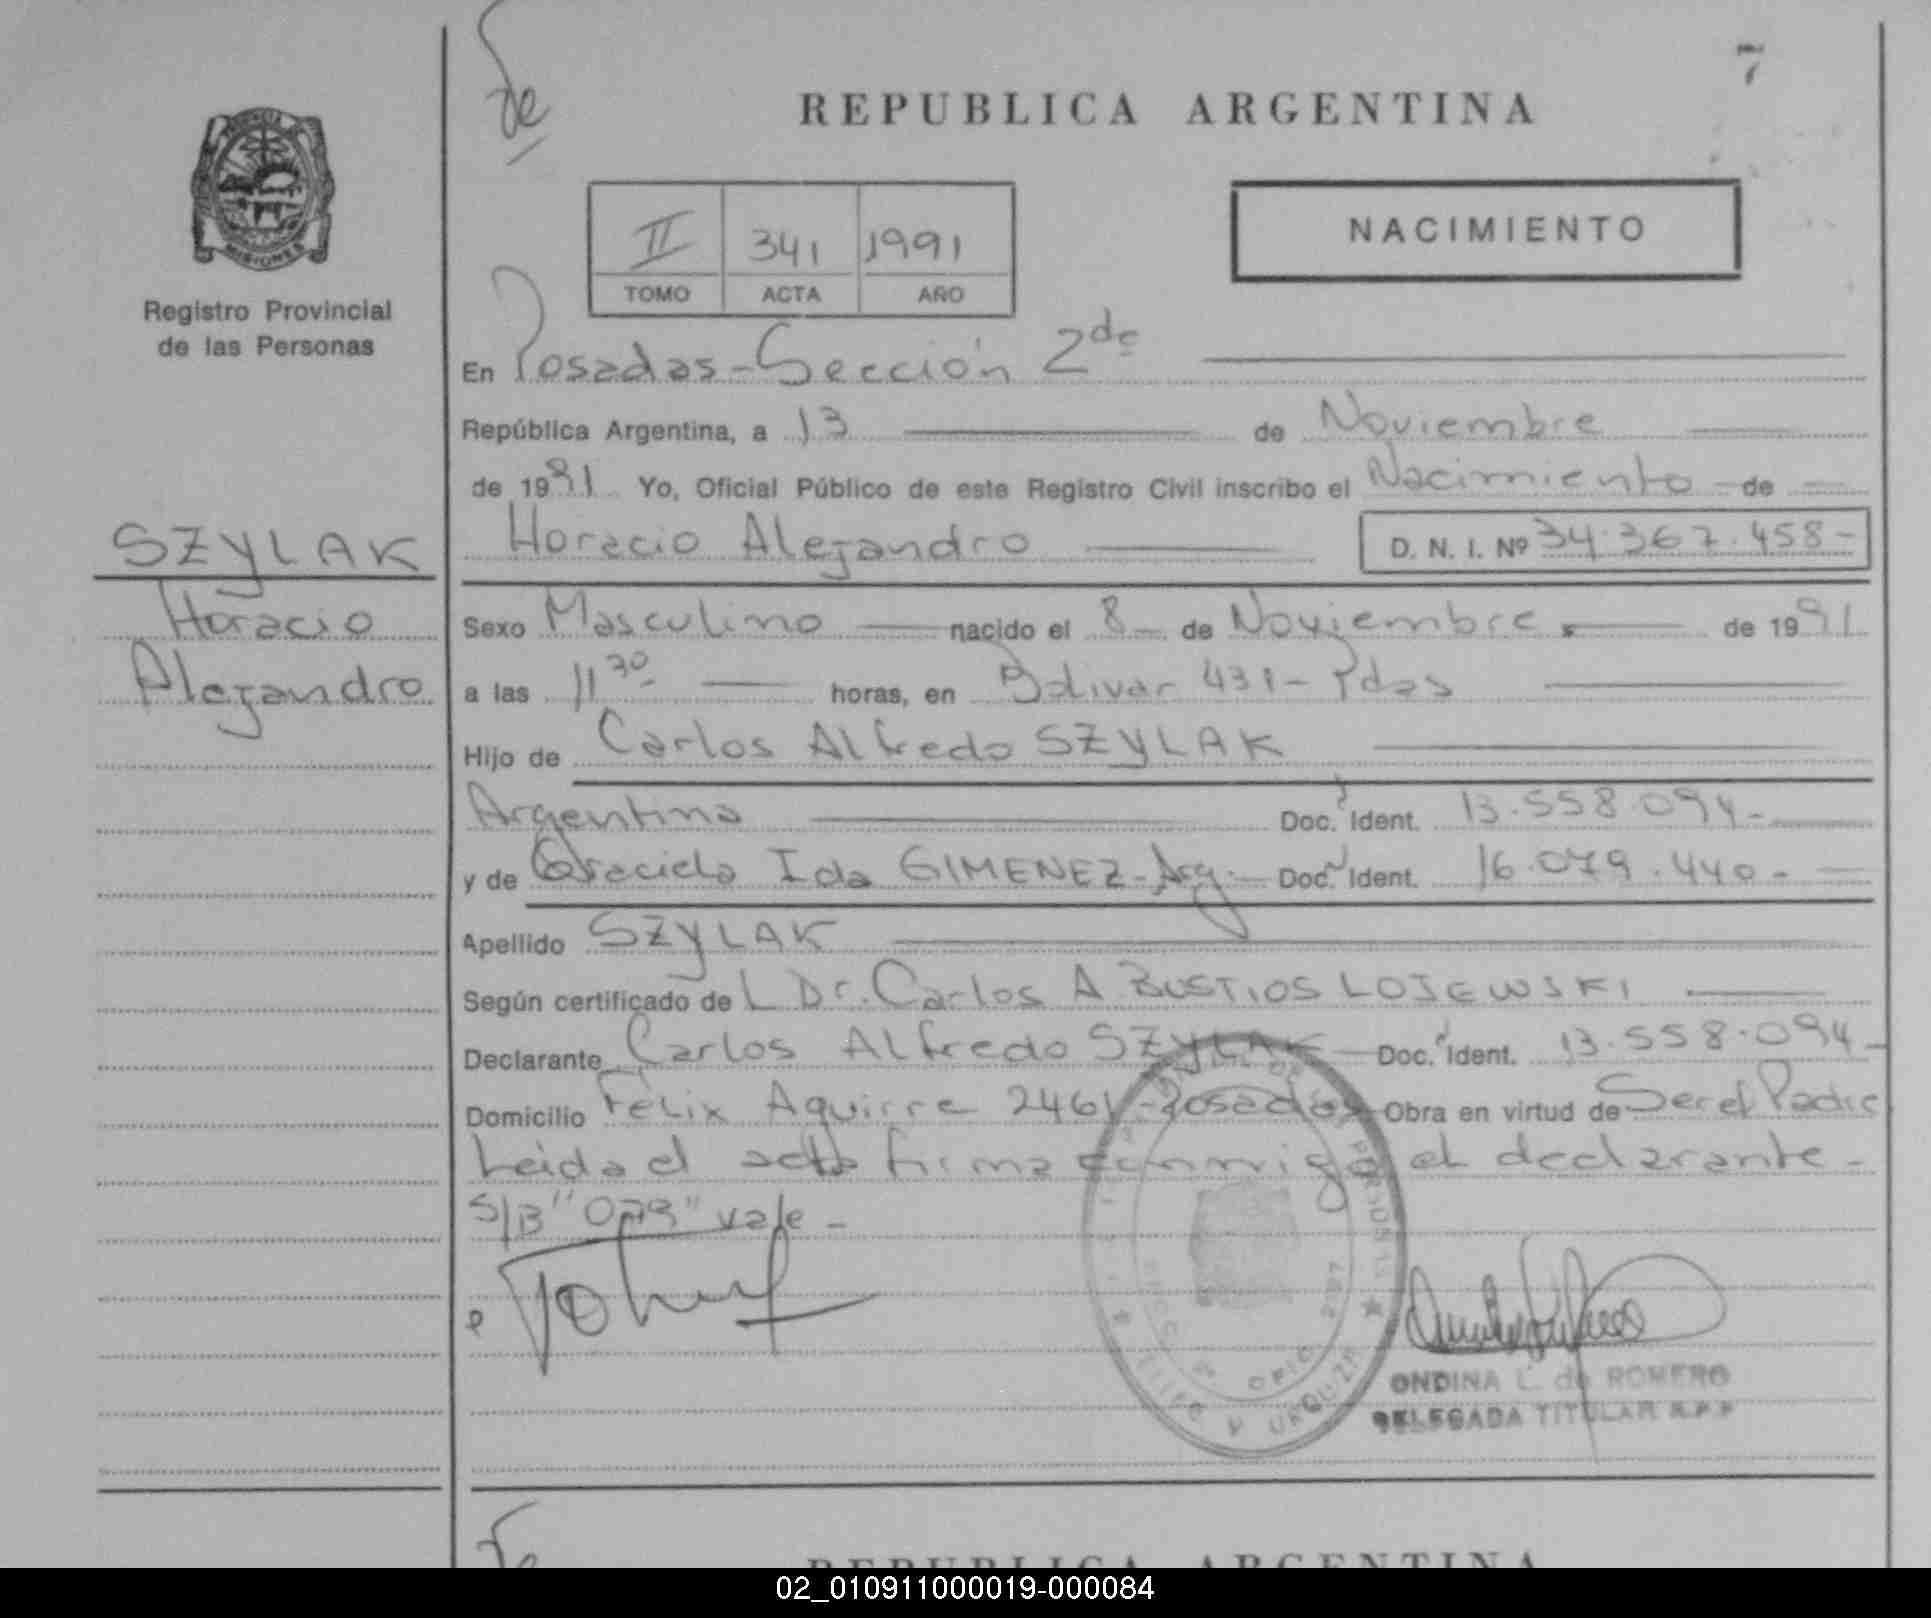 7
REPUBLICA ARGENTINA
NACIMIENTO
II 341 1991
TOMO ACTA AÑO
MISIONES
Registro Provincial
de las Personas
En Posadas - Sección 2da
República Argentina, a 13 de Noviembre
de 1991 Yo, Oficial Público de este Registro Civil inscribo el Nacimiento de
Horacio Alejandro D. N. I. Nº 34.367.458-
SZYLAK
Horacio
Alejandro
Sexo Masculino nacido el 8 de Noviembre de 1991
a las 11 30 horas, en Bolivar 431 - Pdas
Hijo de Carlos Alfredo SZYLAK
Argentino Doc. Ident. 13.558.094-
y de Graciela Ida GIMENEZ - Arg. Doc. Ident. 16.079.440-
Apellido SZYLAK
Según certificado de L Dr. Carlos A. BUSTIOS LOJEWSKI
Declarante Carlos Alfredo SZYLAK Doc. Ident. 13.558.094-
Domicilio Félix Aguirre 2461 - Posadas Obra en virtud de Ser el Padre
Leida el acta firma conmigo el declarante -
S/B "079" vale -
ONDINA L. de ROMERO
DELEGADA TITULAR R.P.P
REPUBLICA ARGENTINA
02_010911000019-000084